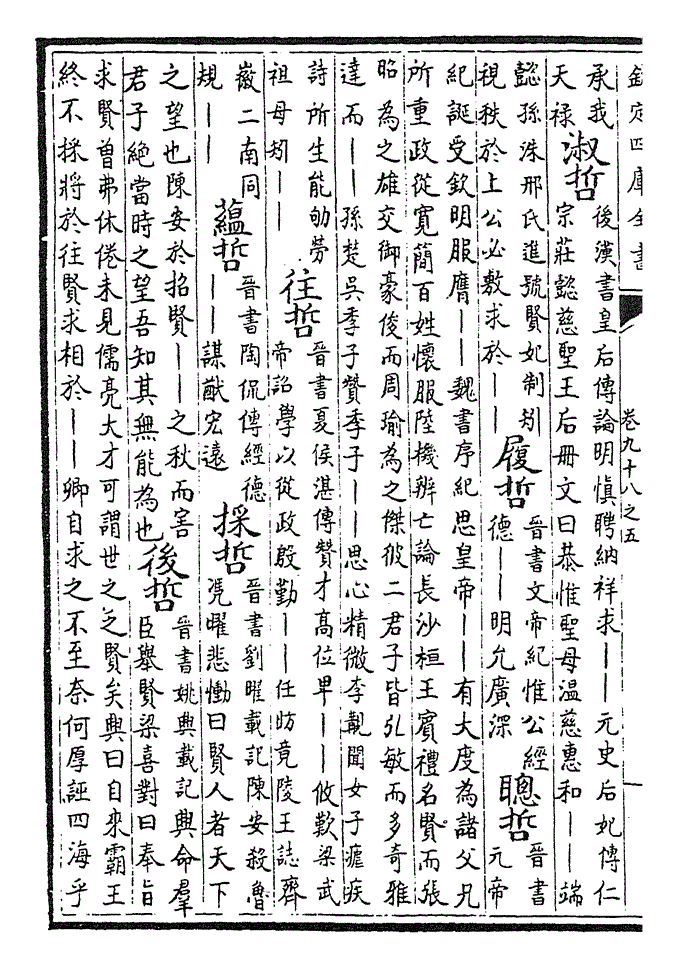 欽定四庫全書 卷九十八之五
承我
天祿
淑哲
後漢書皇后傳論明慎聘納祥求——元史后妃傳仁
宗莊懿慈聖王后冊文曰恭惟聖母溫慈惠和——端
懿孫洙邢氏進號賢妃制矧
視秩於上公必敷求於——
履哲
晉書文帝紀惟公經
德——明允廣深
聰哲
晉書
元帝
紀誕受欽明服膺——魏書序紀思皇帝——有大度為諸父兄
所重政從寬簡百姓懷服陸機辨亡論長沙桓王賓禮名賢而張
昭為之雄交御豪俊而周瑜為之傑彼二君子皆弘敏而多奇雅
達而——孫楚吳季子贊季子——思心精微李覯聞女子瘧疾
詩所生能劬勞
祖母矧——
往哲
晉書夏侯湛傳贊才高位卑——攸歎梁武
帝詔學以從政殷勤——任昉竟陵王誌齊
徽二南同
規——
蘊哲
晉書陶侃傳經德
——謀猷宏遠
採哲
晉書劉曜載記陳安殺魯
憑曜悲慟曰賢人者天下
之望也陳安於招賢——之秋而害
君子絕當時之望吾知其無能為也
後哲
晉書姚興載記興命羣
臣舉賢梁喜對曰奉旨
求賢曾弗休倦未見儒亮大才可謂世之乏賢矣興曰自來霸王
終不採將於往賢求相於——卿自求之不至奈何厚誣四海乎